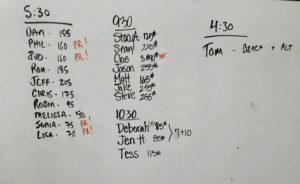 5:30
DAN - 155
PHIL - 160 PR!
BUD - 160 PR!
RAM - 185
JEFF - 205
CHRIS - 175
ROBIN - 95
MELISSA - 50
SONIA - 75 PR!
LISA - 70 PR!
930
Stuart 120#
Sean 225#
Joe
Jason 255#
Matt 165#
Jake 255#
Steve 255#
1030
Deborah 85#
Jen H 85#
7+10
Tess 115#
4:30
TOM - BEACH + ALT